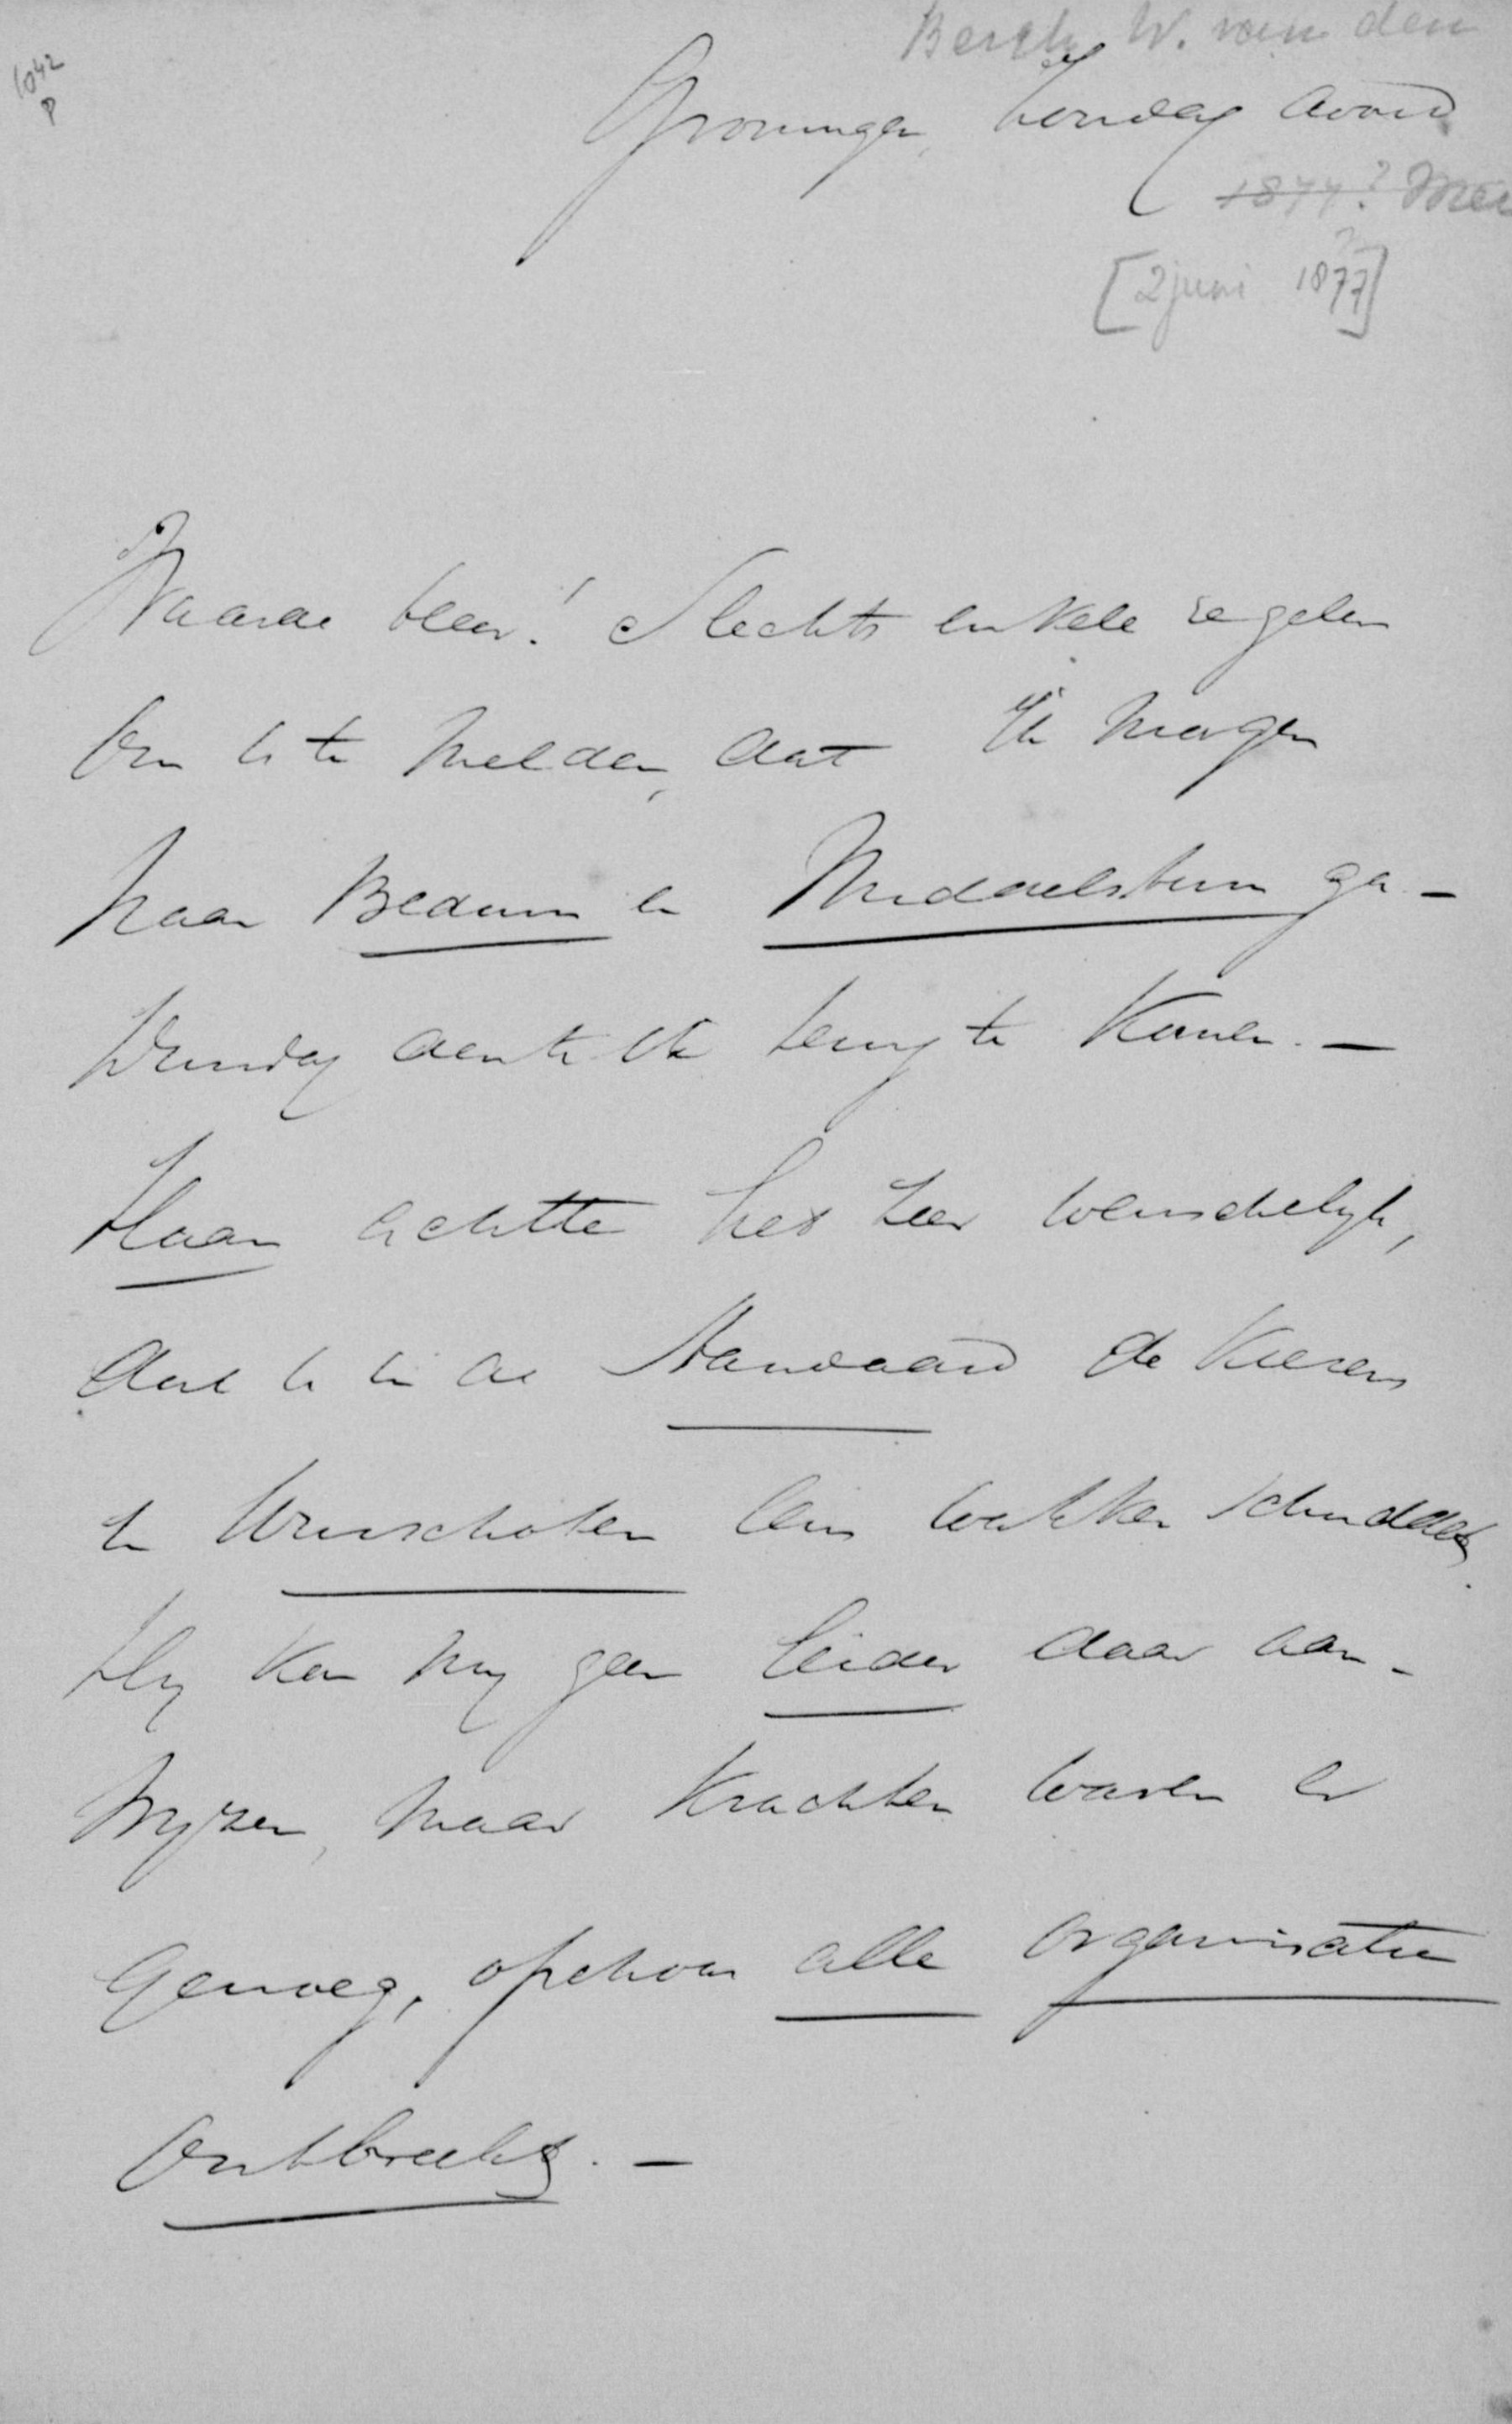 1042
P
Bergh, W. van den
Groningen, Zondag avond
1877? Mei
[2 juni 1877]
?
Waarde Heer! Slechts enkele regelen
om U te melden, dat ik morgen
naar Bedum en Middelstum ga. —
Dinsdag denk ik terug te komen. —
Haan achtte het zeer wenschelijk,
dat U in de Standaard de kiezers
te Winschoten eens wakker schuddet.
Hij kon mij geen leider daar aan-
wijzen, maar krachten waren er
genoeg, ofschoon alle organisatie
ontbreekt. —